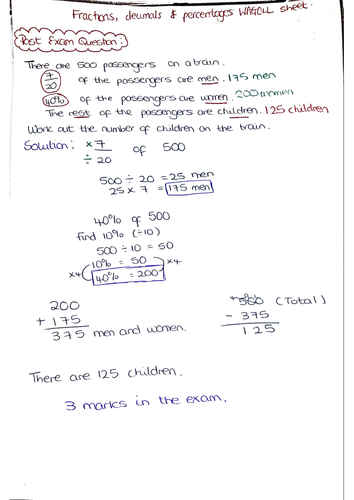 Fractions, decimals & percentages WAGOLL sheet.
Past Exam Question:
There are 500 passengers on a train.
7/20 of the passengers are men. 175 men
40% of the passengers are women. 200 women
The rest of the passengers are children. 125 children
Work out the number of children on the train.
Solution: ×7 / ÷20 of 500
500 ÷ 20 = 25 men
25 × 7 = 175 men
40% of 500
find 10% (÷10)
500 ÷ 10 = 50
10% = 50
×4 40% = 200 ×4
200
+ 175
375 men and women.
500 (Total)
- 375
125
There are 125 children.
3 marks in the exam.